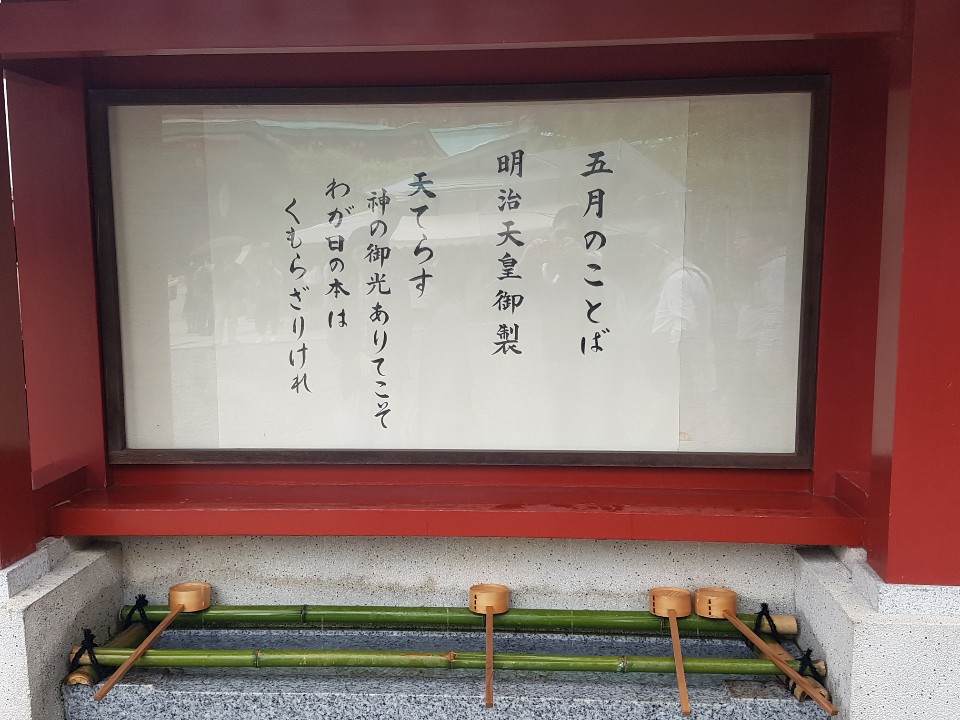 五月のことば
明治天皇御製
天てらす
神の御光ありてこそ
わが日の本は
くもらざりけれ